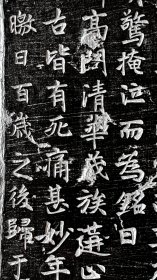 驚掩泣而為銘曰
高清華茂族蓮
古皆有死痛甚妙年
日百歲之後歸于